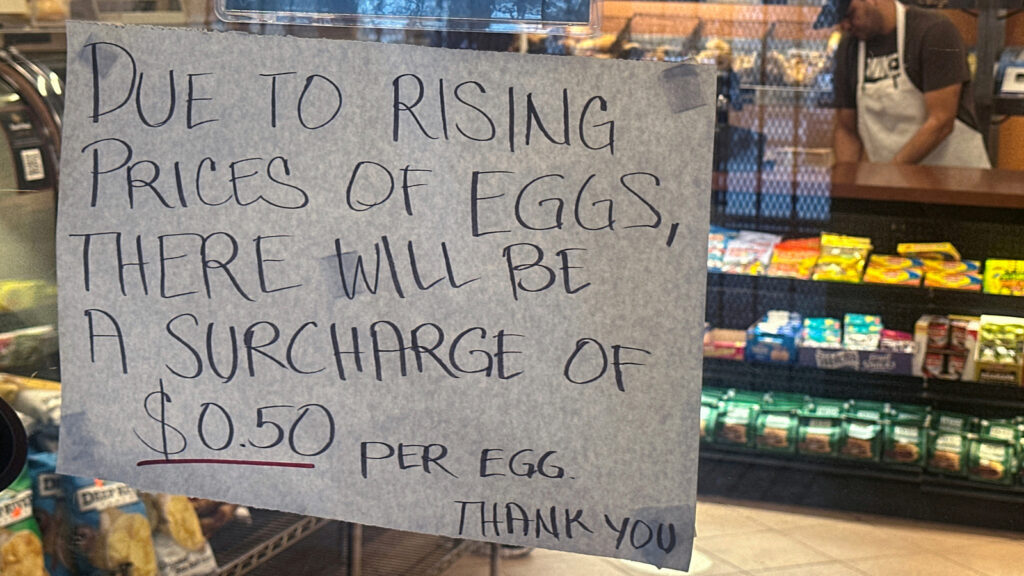 DUE TO RISING
PRICES OF EGGS,
THERE WILL BE
A SURCHARGE OF
$0.50 PER EGG.
THANK YOU